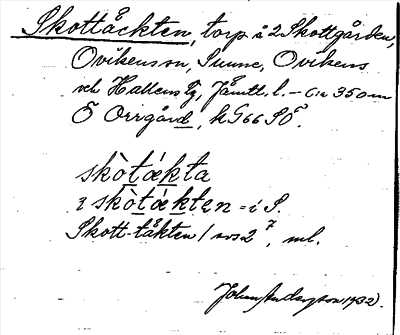 Skottåckten, torp å 2 Skottgården,
Ovikens sn, Sunne, Ovikens
och Hallens tg, Jämtl. l. – C:a 350 m
Ö Orrgård, kG66SÖ.
skòtǽkta
i skòtǽkten = i S.
Skott-täkten / sos 2 7, ml.
1932.